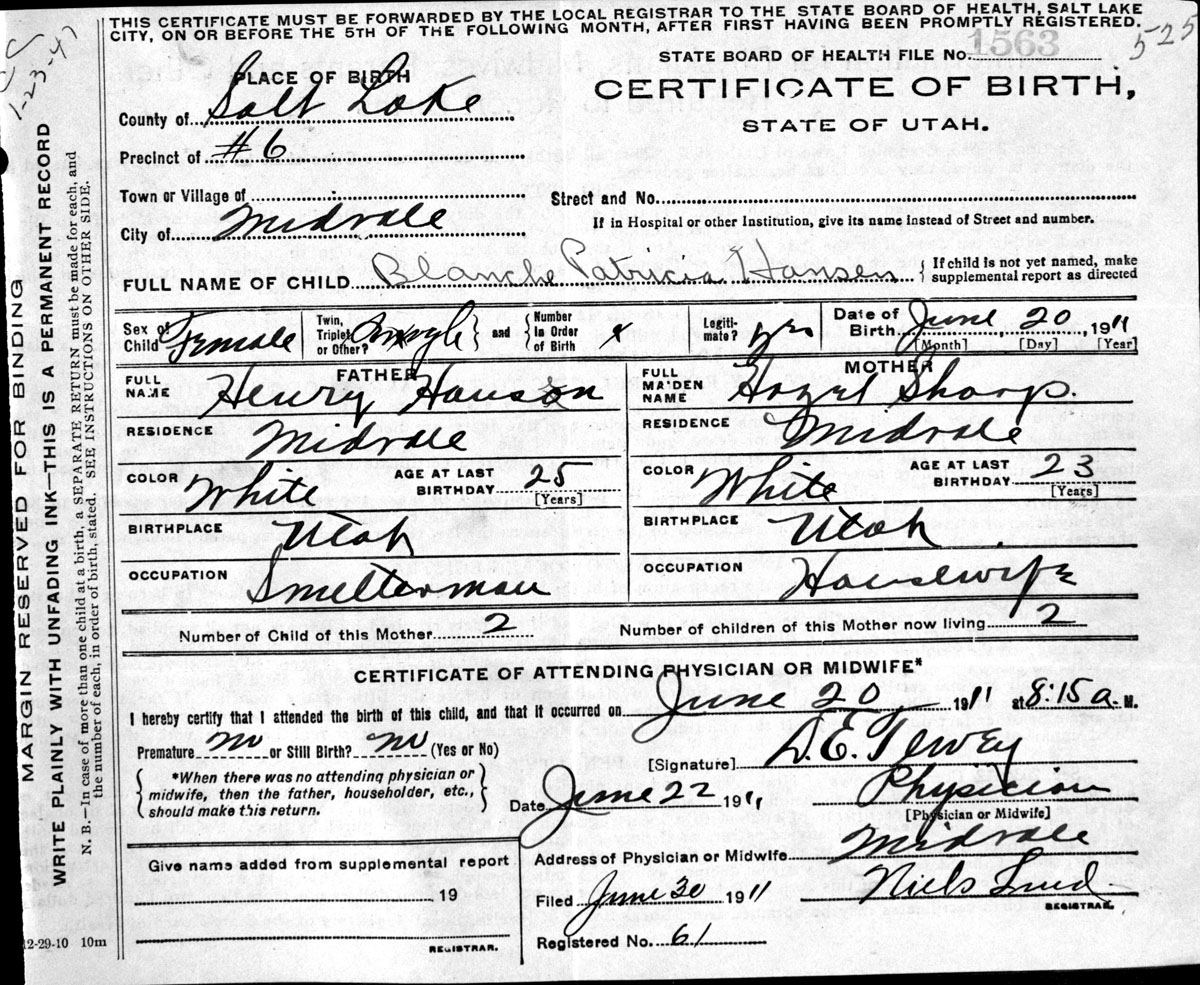 THIS CERTIFICATE MUST BE FORWARDED BY THE LOCAL REGISTRAR TO THE STATE BOARD OF HEALTH, SALT LAKE
CITY, ON OR BEFORE THE 5TH OF THE FOLLOWING MONTH, AFTER FIRST HAVING BEEN PROMPTLY REGISTERED.
1-23-47
525
STATE BOARD OF HEALTH FILE No. 1563
CERTIFICATE OF BIRTH,
STATE OF UTAH.
PLACE OF BIRTH
County of Salt Lake
Precinct of #6
Town or Village of
Street and No.
City of Midvale
If in Hospital or other Institution, give its name instead of Street and number.
FULL NAME OF CHILD Blanche Patricia Hansen { If child is not yet named, make supplemental report as directed
Sex of Child Female Twin, Triplet or Other? } and { Number in Order of Birth x Legiti-mate? yes Date of Birth June 20, 1911
[Month] [Day] [Year]
FATHER
MOTHER
FULL NAME Henry Hanson
FULL MAIDEN NAME Hazel Sharp.
RESIDENCE Midvale
RESIDENCE Midvale
COLOR White AGE AT LAST BIRTHDAY 25 [Years]
COLOR White AGE AT LAST BIRTHDAY 23 [Years]
BIRTHPLACE Utah
BIRTHPLACE Utah
OCCUPATION Smelterman
OCCUPATION Housewife
Number of Child of this Mother 2
Number of children of this Mother now living 2
CERTIFICATE OF ATTENDING PHYSICIAN OR MIDWIFE*
I hereby certify that I attended the birth of this child, and that it occurred on June 20 1911 at 8:15 a. M.
Premature no or Still Birth? no (Yes or No)
[Signature] D. E. Tewey
{ *When there was no attending physician or
midwife, then the father, householder, etc.,
should make this return. }
Date June 22 1911
Physician
[Physician or Midwife]
Give name added from supplemental report
19
REGISTRAR.
Address of Physician or Midwife Midvale
Filed June 30 1911 Niels Lind
REGISTRAR.
Registered No. 61
12-29-10 10m
MARGIN RESERVED FOR BINDING
WRITE PLAINLY WITH UNFADING INK—THIS IS A PERMANENT RECORD
N. B.—In case of more than one child at a birth, a SEPARATE RETURN must be made for each, and
the number of each, in order of birth, stated. SEE INSTRUCTIONS ON OTHER SIDE.